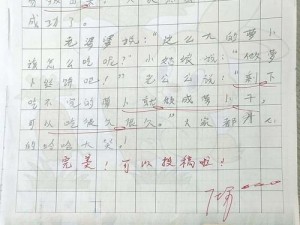 成功了。
老婆婆说：“这么大的萝卜
该怎么吃呢？”小姑娘说：“做萝
卜丝饼吧！”老公公说：“剩下
吃不完的萝卜就做成萝卜干，
可以吃很久很久。”大家都开心
的哈哈大笑！
完美！可以投稿啦！